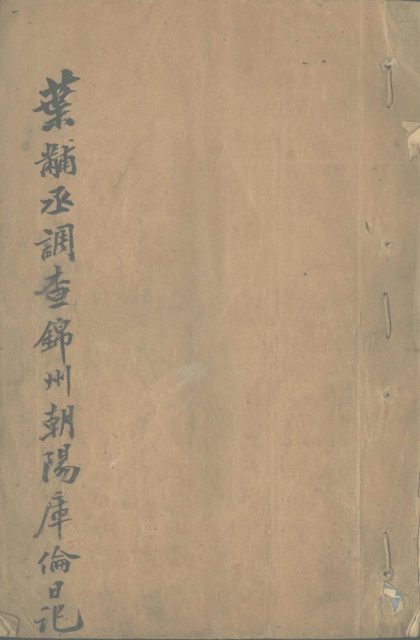 葉黼丞調查錦州朝陽庫倫日記